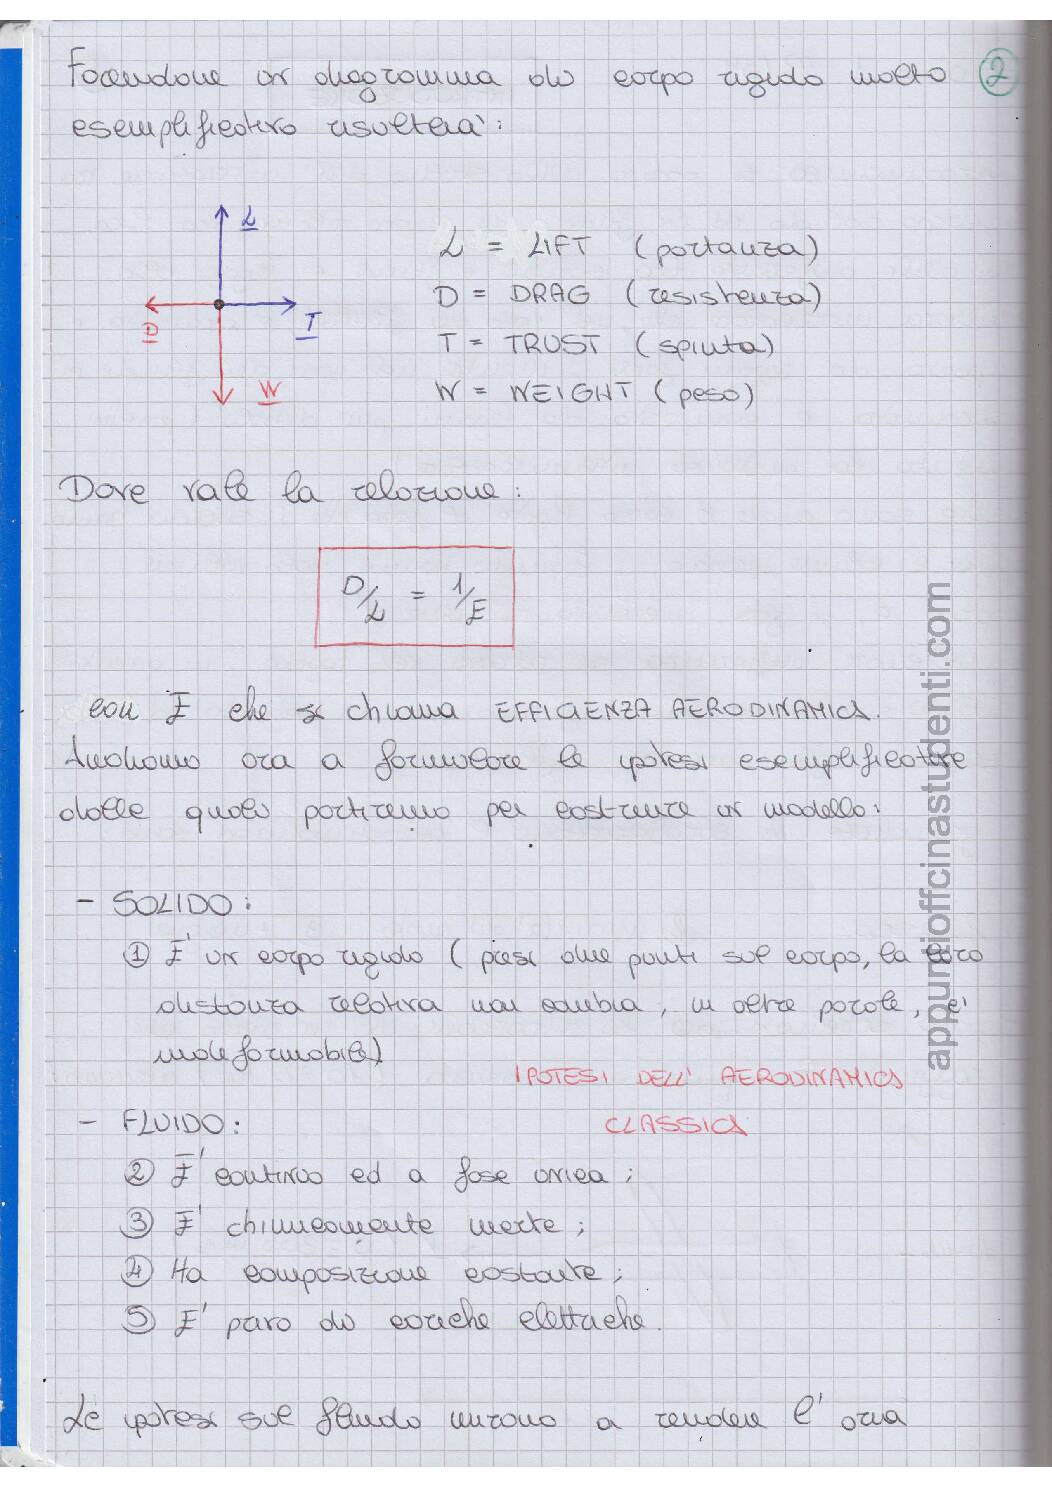 Facendone un diagramma di corpo rigido molto 2
esemplificativo risulterà:
L
D
T
W
L = LIFT (portanza)
D = DRAG (resistenza)
T = TRUST (spinta)
W = WEIGHT (peso)
Dove vale la relazione:
D/L = 1/E
con E che si chiama EFFICIENZA AERODINAMICA.
Andiamo ora a formulare le ipotesi esemplificative
dalle quali partiremo per costruire un modello:
- SOLIDO:
① E' un corpo rigido (presi due punti sul corpo, la loro
distanza relativa non cambia, in altre parole, e'
indeformabile)
IPOTESI DELL' AERODINAMICA
CLASSICA
- FLUIDO:
② E' continuo ed a fase unica;
③ E' chimicamente inerte;
④ Ha composizione costante;
⑤ E' privo di cariche elettriche.
Le ipotesi sul fluido mirano a rendere l' aria
appuntiofficinastudenti.com